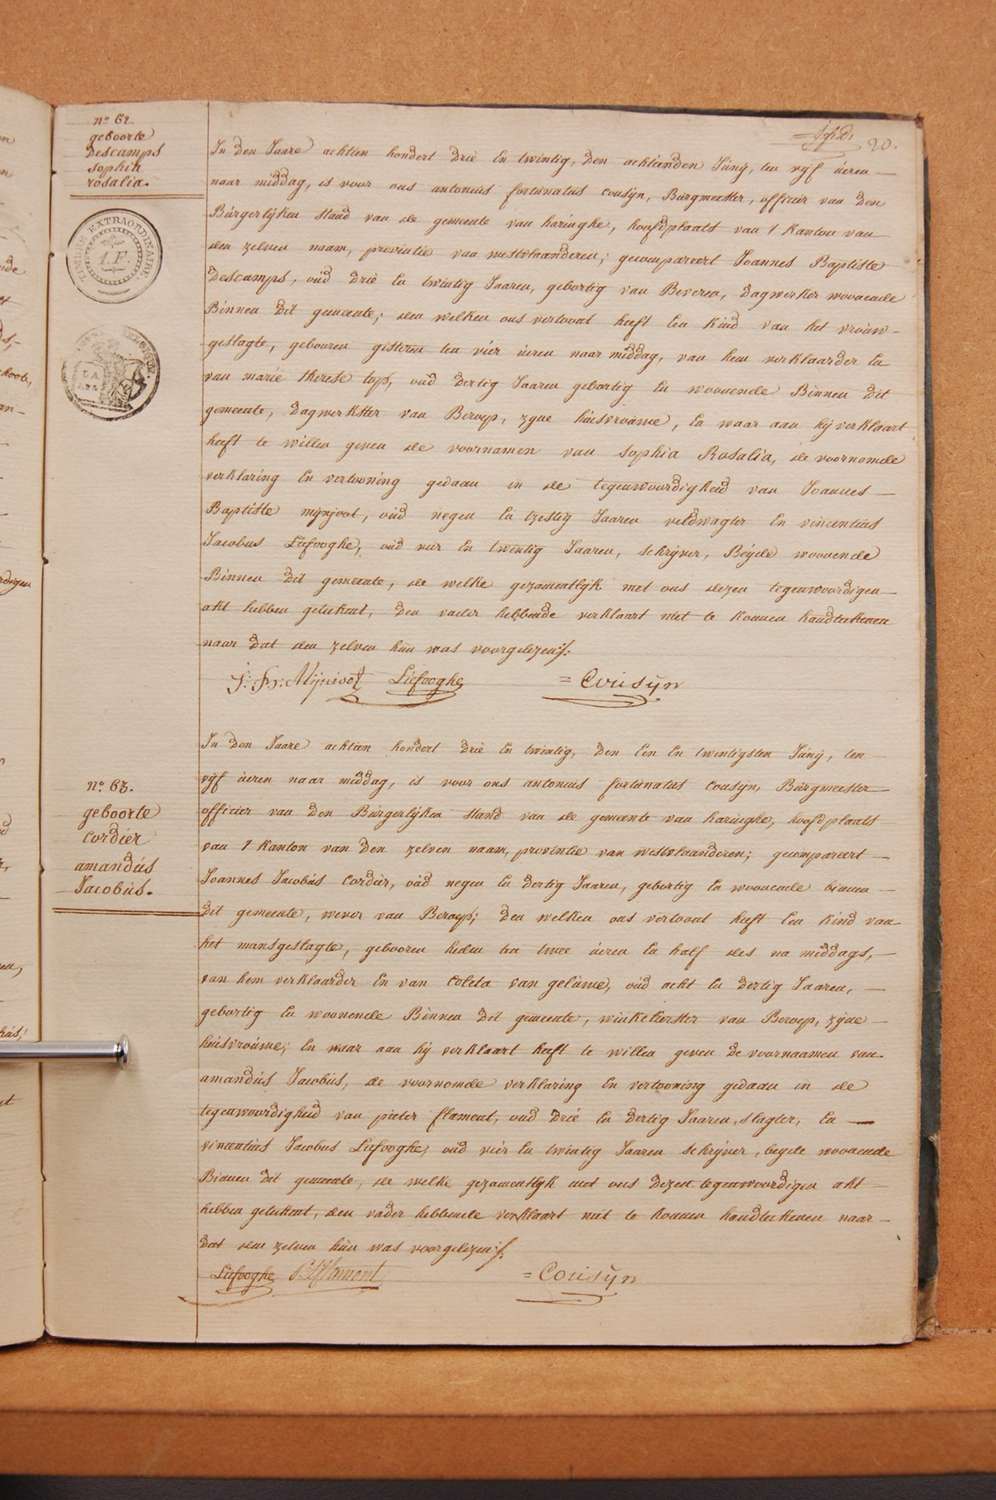 20.
nº 62.
geboorte
Descamps
sophia
rosalia.
TIMBRE EXTRAORDINAIRE
1.F.
In den Jaare achtien hondert drie En twintig, den achtienden Júnÿ, ten vÿf úeren
naar middag, is voor ons antonius fortunatus cousÿn, Búrgmeester, officier van den
Búrgerlÿken stand van de gemeente van haringhe, hoofdplaats van 1 kanton van
den zelven naam, provintie van westvlaanderen; gecompareert Joannes Baptiste
Descamps, oud drie En twintig Jaaren, gebortig van Beveren, dagwerker woonende
Binnen dit gemeente; den welken ons vertoont heeft Een kind van het vrouw-
geslagte, gebouren gisteren ten vier úeren naar middag, van hem verklaarder En
van marie therese top, oud dertig Jaaren gebortig En woonende Binnen dit
gemeente, dagwerkster van Beroep, zÿne húisvroúwe, En waar aan hÿ verklaart
heeft te willen geven de voornamen van sophia Rosalia, de voornomde
verklaring En vertooning gedaan in de tegenwoordigheid van Joannes
Baptiste mÿnjoot, oúd negen En tzestig Jaaren veldwagter En vincentius
Jacobus Liefooghe, oúd vier En twintig Jaaren, schrÿver, Beÿde woonende
Binnen dit gemeente, de welke gezamentlÿk met ons dezen tegenwoordigen
akt hebben getekent, den vader hebbende verklaart niet te konnen handteekenen
naar dat den zelven hún was voorgelezen/.
J: B: Mÿnioot Liefooghe = Cousÿn
nº 63.
geboorte
Cordier
amandús
Jacobús.
In den Jaare achtien hondert drie En twintig, den Een En twintigsten Júnÿ, ten
vÿf úeren naar middag, is voor ons antonius fortunatus cousÿn, Búrgmeester
officier van den Búrgerlÿken stand van de gemeente van haringhe, hoofdplaats
van 1 kanton van den zelven naam, provintie van westvlaanderen; gecompareert
Joannes Jacobús Cordier, oúd negen En dertig Jaaren, gebortig En woonende binnen
dit gemeente, wever van Beroep; den welken ons vertoont heeft Een kind van
het mansgeslagte, gebooren heden ten twee úeren En half des na middags,
van hem verklaarder En van Coleta van gelúwe, oúd acht En dertig Jaaren,
gebortig En woonende Binnen dit gemeente, winkelierster van Beroep, zÿne
húisvroúwe; En waar aan hÿ verklaart heeft te willen geven de voornaamen van
amandús Jacobús, de voornomde verklaring En vertooning gedaan in de
tegenwoordigheid van pieter flament, oud drie En dertig Jaaren, slagter, En
vincentius Jacobus Liefooghe, oúd vier En twintig Jaaren schrÿver, beyde woonende
Binnen dit gemeente, de welke gezamentlÿk met ons dezen tegenwoordigen akt
hebben getekent, den vader hebbende verklaart niet te konnen handteekenen naar
dat den zelven hún was voorgelezen/.
Liefooghe P: flament = Cousÿn